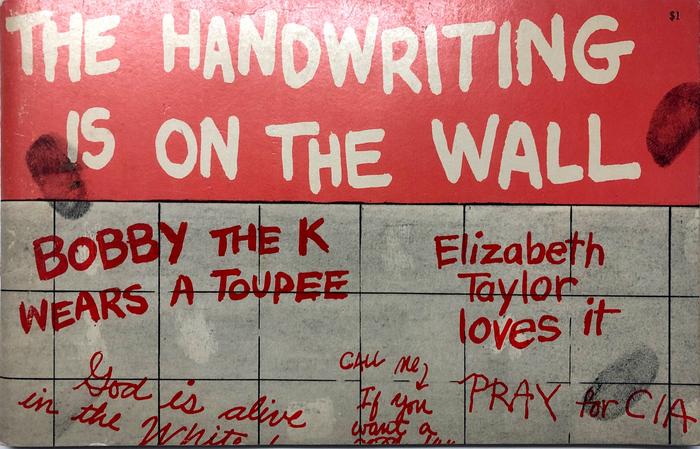 $1
THE HANDWRITING
IS ON THE WALL
BOBBY THE K
WEARS A TOUPEE
Elizabeth
Taylor
loves it
God is alive
in the White
CALL ME
If you
want a
PRAY for CIA